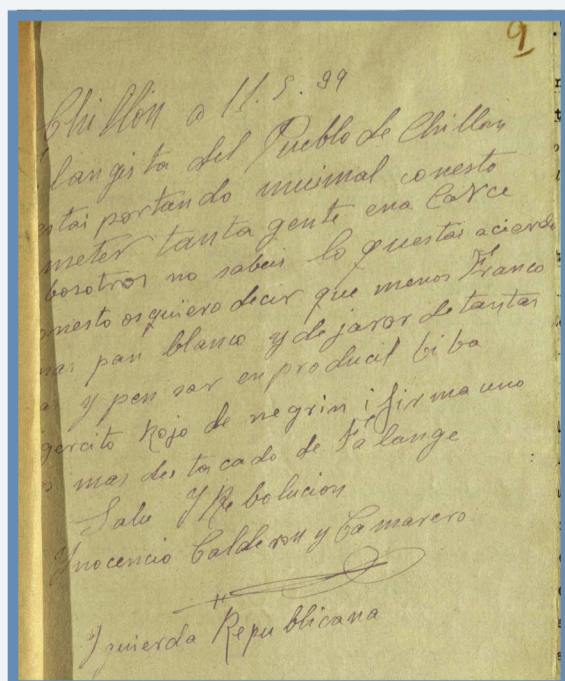 9
Chillón a 11.5.39
langista del Pueblo de Chillon
stai portando mui mal conesto
meter tanta gente ena Carce
bosotros no sabeis lo questai aciendo
onesto os quiero decir que menos Franco
mas pan blanco y dejaror de tantas
y pen sar en producil biba
gercito Rojo de negrin i firma uno
mas des tacado de Falange
Salu Y Rebolucion
Ynocencio Calderon y Camarero
Izquierda Repu blicana